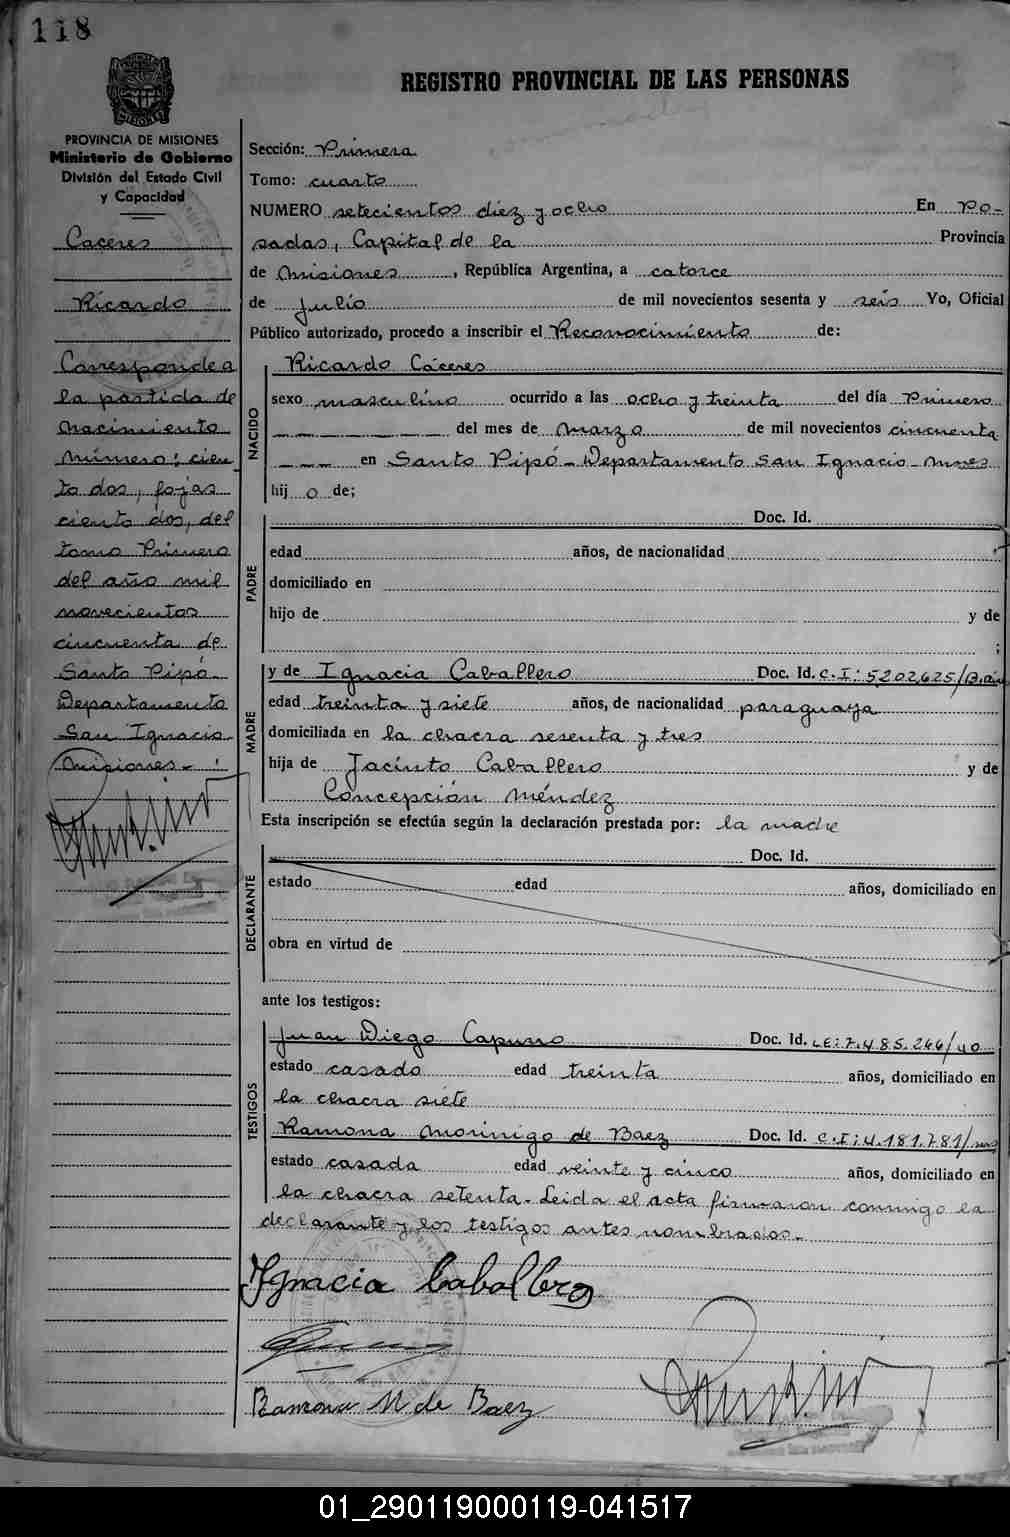 118
REGISTRO PROVINCIAL DE LAS PERSONAS
PROVINCIA DE MISIONES
Ministerio de Gobierno
División del Estado Civil
y Capacidad
Caceres
Ricardo
Corresponde a
la partida de
nacimiento
número: cien
to dos, fojas
ciento dos, del
tomo Primero
del año mil
novecientos
cincuenta de
Santo Pipó-
Departamento
San Ignacio-
Misiones-
Sección: Primera
Tomo: cuarto
NUMERO setecientos diez y ocho En Po-
sadas, Capital de la Provincia
de Misiones, República Argentina, a catorce
de Julio de mil novecientos sesenta y seis Yo, Oficial
Público autorizado, procedo a inscribir el Reconocimiento de:
Ricardo Cáceres
NACIDO
sexo masculino ocurrido a las ocho y treinta del día Primero
del mes de marzo de mil novecientos cincuenta
en Santo Pipó-Departamento San Ignacio-
hij o de;
PADRE
Doc. Id.
edad años, de nacionalidad
domiciliado en
hijo de y de
;
MADRE
y de Ignacia Caballero Doc. Id. C.I: 5202625/
edad treinta y siete años, de nacionalidad paraguaya
domiciliada en la chacra sesenta y tres
hija de Jacinto Caballero y de
Concepción Méndez
Esta inscripción se efectúa según la declaración prestada por: la madre
DECLARANTE
Doc. Id.
estado edad años, domiciliado en
obra en virtud de
ante los testigos:
TESTIGOS
Juan Diego Doc. Id. LE: 7.485.266/40
estado casado edad treinta años, domiciliado en
la chacra siete
Ramona Morinigo de Baez Doc. Id. C.I: 4.181.781/
estado casada edad veinte y cinco años, domiciliado en
la chacra setenta. Leida el acta firmaron conmigo la
declarante y los testigos antes nombrados.-
Ignacia Caballero
Ramona M de Baez
01_290119000119-041517